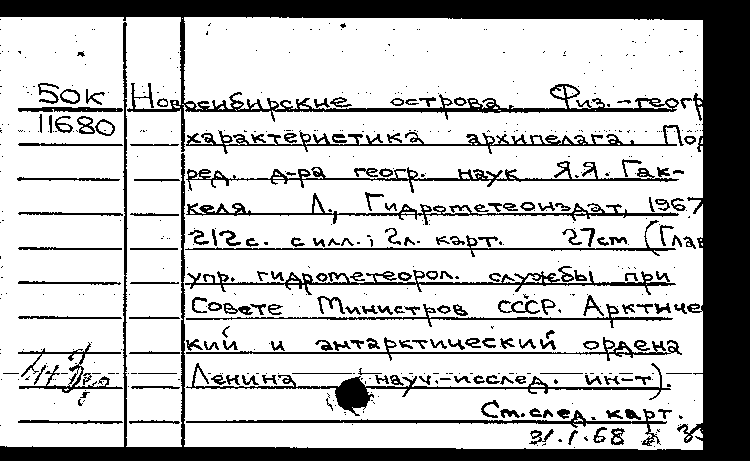 50к Новосибирские острова. Физ.-геогр
11680 характеристика архипелага. Под
ред. д-ра геогр. наук Я.Я. Гак-
келя. Л., Гидрометеоиздат, 1967
212с. с илл.; 2л. карт. 27cm (Глав
упр. гидрометеорол. службы при
Совете Министров СССР. Арктичес
кий и антарктический ордена
Ленина науч.-исслед. ин-т).
См. след. карт.
31.1.68